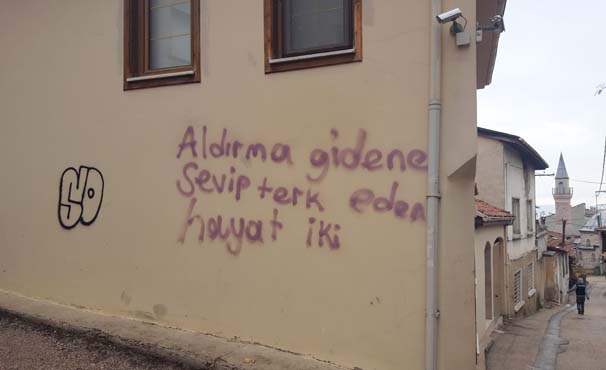 Aldırma gidene
Sevip terk eden
hayat iki